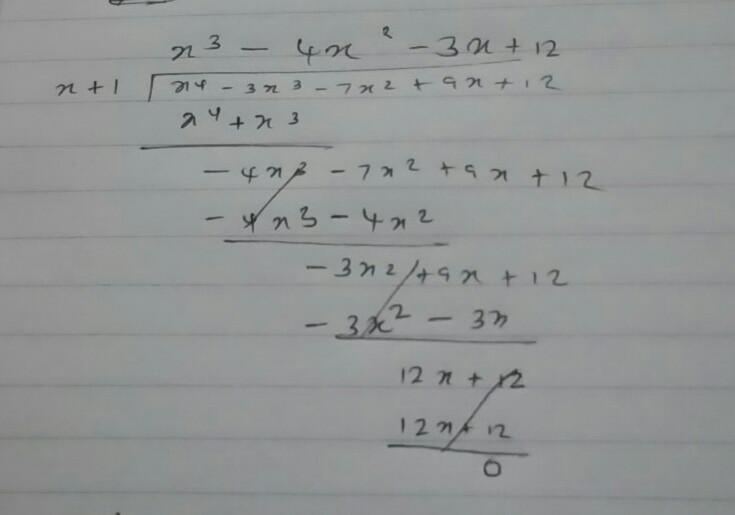 x³ - 4x² - 3x + 12
x + 1 x⁴ - 3x³ - 7x² + 9x + 12
x⁴ + x³
- 4x³ - 7x² + 9x + 12
- 4x³ - 4x²
- 3x² + 9x + 12
- 3x² - 3x
12x + 12
12x + 12
0